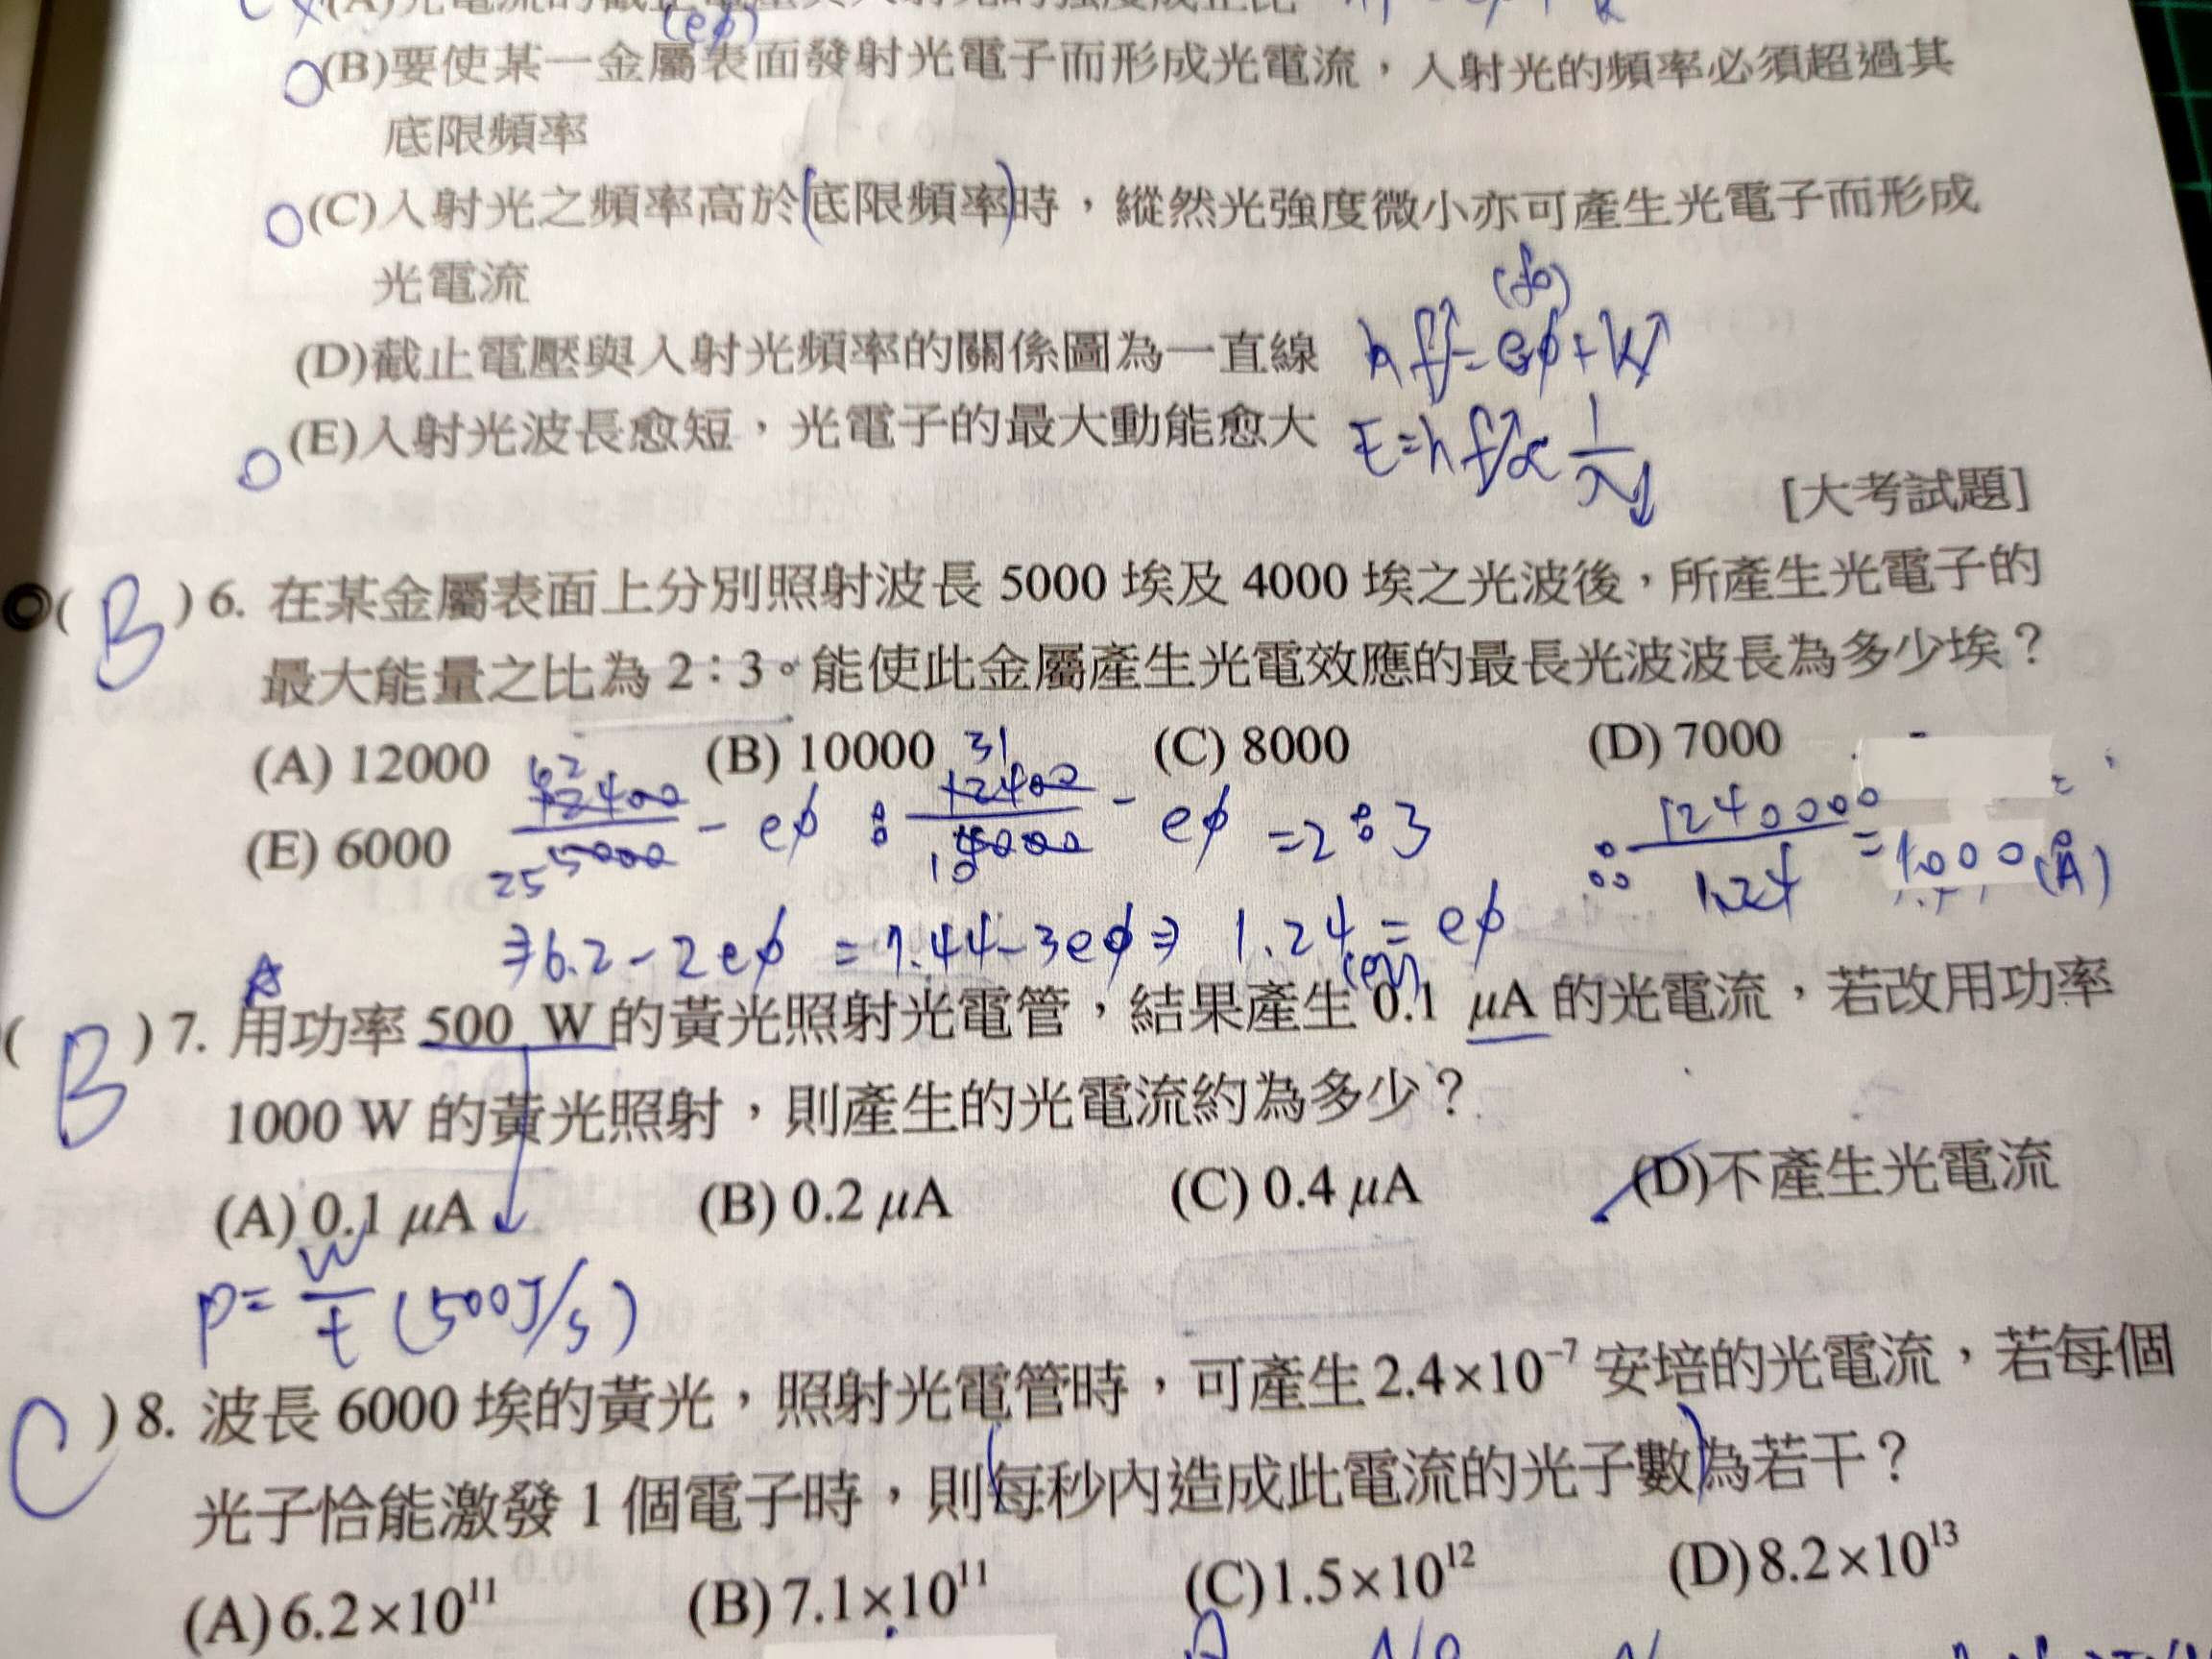 (eφ)
(B)要使某一金屬表面發射光電子而形成光電流，入射光的頻率必須超過其
底限頻率
(C)入射光之頻率高於(底限頻率)時，縱然光強度微小亦可產生光電子而形成
光電流
(f0)
(D)截止電壓與入射光頻率的關係圖為一直線 hf=eφ+k
(E)入射光波長愈短，光電子的最大動能愈大 E=hf∝1/λ
[大考試題]
( B ) 6. 在某金屬表面上分別照射波長 5000 埃及 4000 埃之光波後，所產生光電子的
最大能量之比為 2：3。能使此金屬產生光電效應的最長光波波長為多少埃？
(A) 12000 (B) 10000 (C) 8000 (D) 7000
62 31
(E) 6000 12400/5000 - eφ : 12400/4000 - eφ = 2:3 ∴ 1240000/1.24 = 1000(Å)
25 10
⇒6.2-2eφ = 7.44-3eφ⇒ 1.24 = eφ
(eV)
( B ) 7. 用功率 500 W 的黃光照射光電管，結果產生 0.1 μA 的光電流，若改用功率
1000 W 的黃光照射，則產生的光電流約為多少？
(A) 0.1 μA (B) 0.2 μA (C) 0.4 μA (D)不產生光電流
P= W/t (500J/s)
C ) 8. 波長 6000 埃的黃光，照射光電管時，可產生 2.4×10⁻⁷ 安培的光電流，若每個
光子恰能激發 1 個電子時，則(每秒內造成此電流的光子數)為若干？
(A) 6.2×10¹¹ (B) 7.1×10¹¹ (C)1.5×10¹² (D)8.2×10¹³